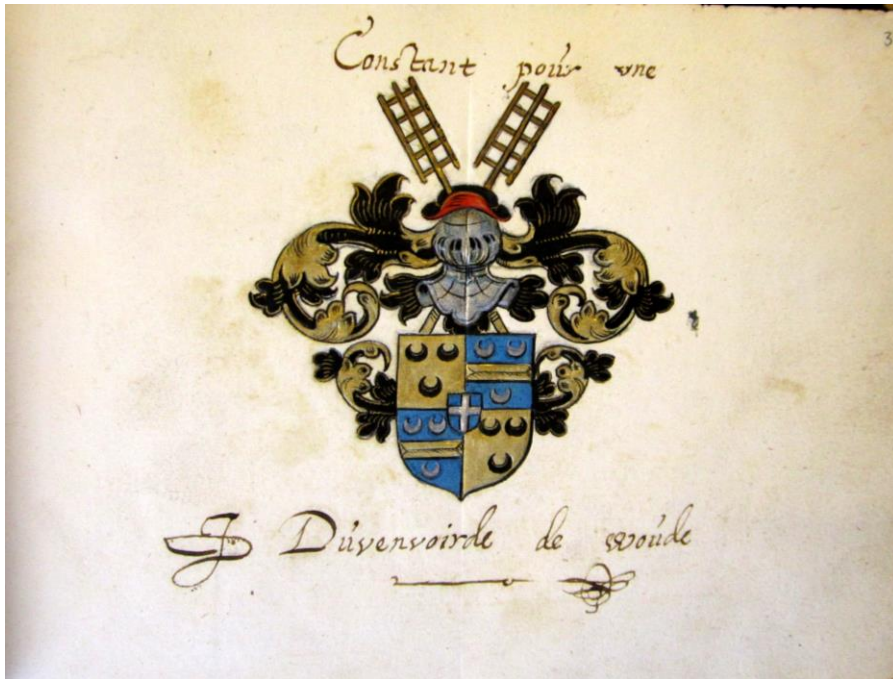 Constant poúr vne
3
J Dúvenvoirde de woúde